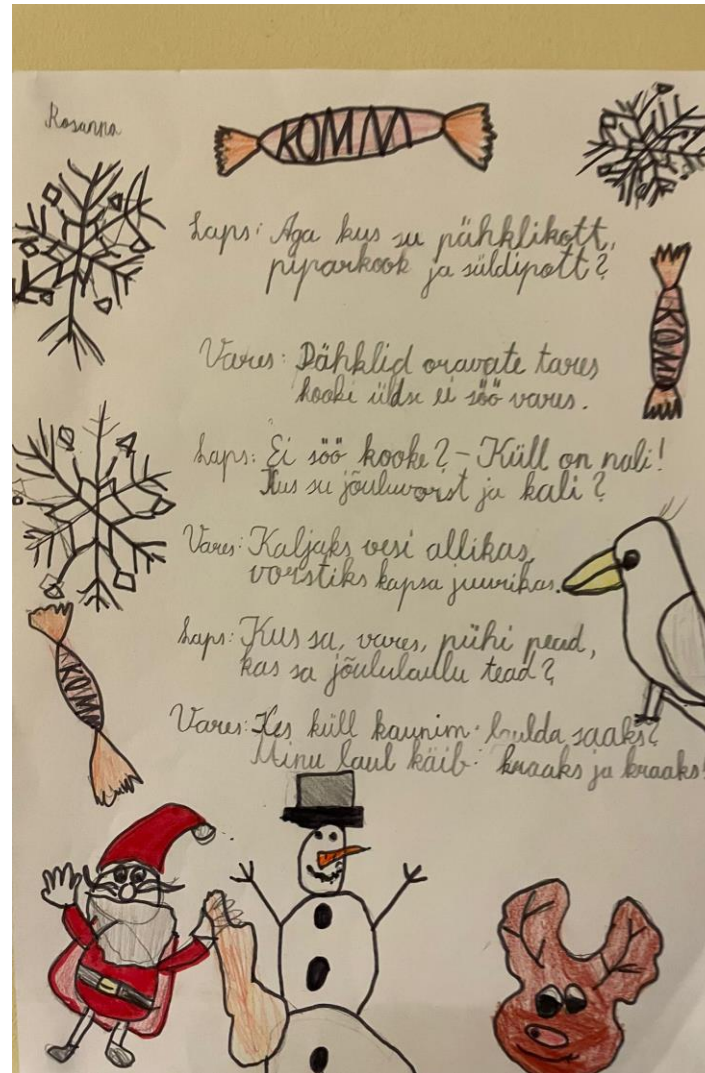 Rosanna
KOMM
Laps: Aga kus su pähklikott,
piparkook ja süldipott?
KOMM
Vares: Pähklid oravate tares
kooki üldse ei söö vares.
Laps: Ei söö kooke? - Küll on nali!
Kus su jõuluvorst ja kali?
Vares: Kaljaks vesi allikas,
vorstiks kapsa juurikas.
KOMM
Laps: Kus sa, vares, pühi pead,
kas sa jõululaulu tead?
Vares: Kes küll kaunim laulda saaks?
Minu laul käib: kraaks ja kraaks!